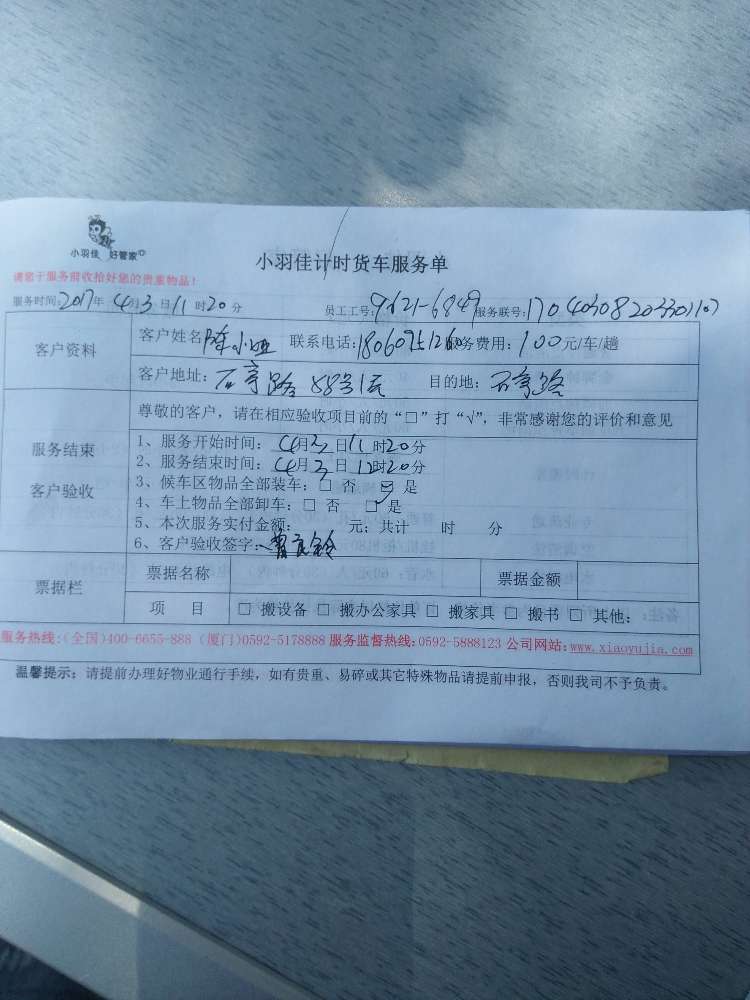 小羽佳 好管家
小羽佳计时货车服务单
请您于服务前收拾好您的贵重物品！
服务时间：2017年 4月3日11时20分 员工工号：9621-6849 服务联号：17040308203301107
客户资料
客户姓名 陈小 联系电话： 服务费用：100元/车/趟
客户地址：石亭路 88号 目的地：石亭路
尊敬的客户，请在相应验收项目前的“□”打“√”，非常感谢您的评价和意见
服务结束
客户验收
1、服务开始时间：4月3日11时20分
2、服务结束时间：4月3日12时20分
3、候车区物品全部装车：□ 否 ☑ 是
4、车上物品全部卸车：□ 否 □ 是
5、本次服务实付金额： 元；共计 时 分
6、客户验收签字：
票据栏
票据名称 票据金额
项 目 □ 搬设备 □ 搬办公家具 □ 搬家具 □ 搬书 □ 其他：
服务热线：（全国）400-6655-888（厦门）0592-5178888 服务监督热线：0592-5888123 公司网站：www.xiaoyujia.com
温馨提示：请提前办理好物业通行手续，如有贵重、易碎或其它特殊物品请提前申报，否则我司不予负责。